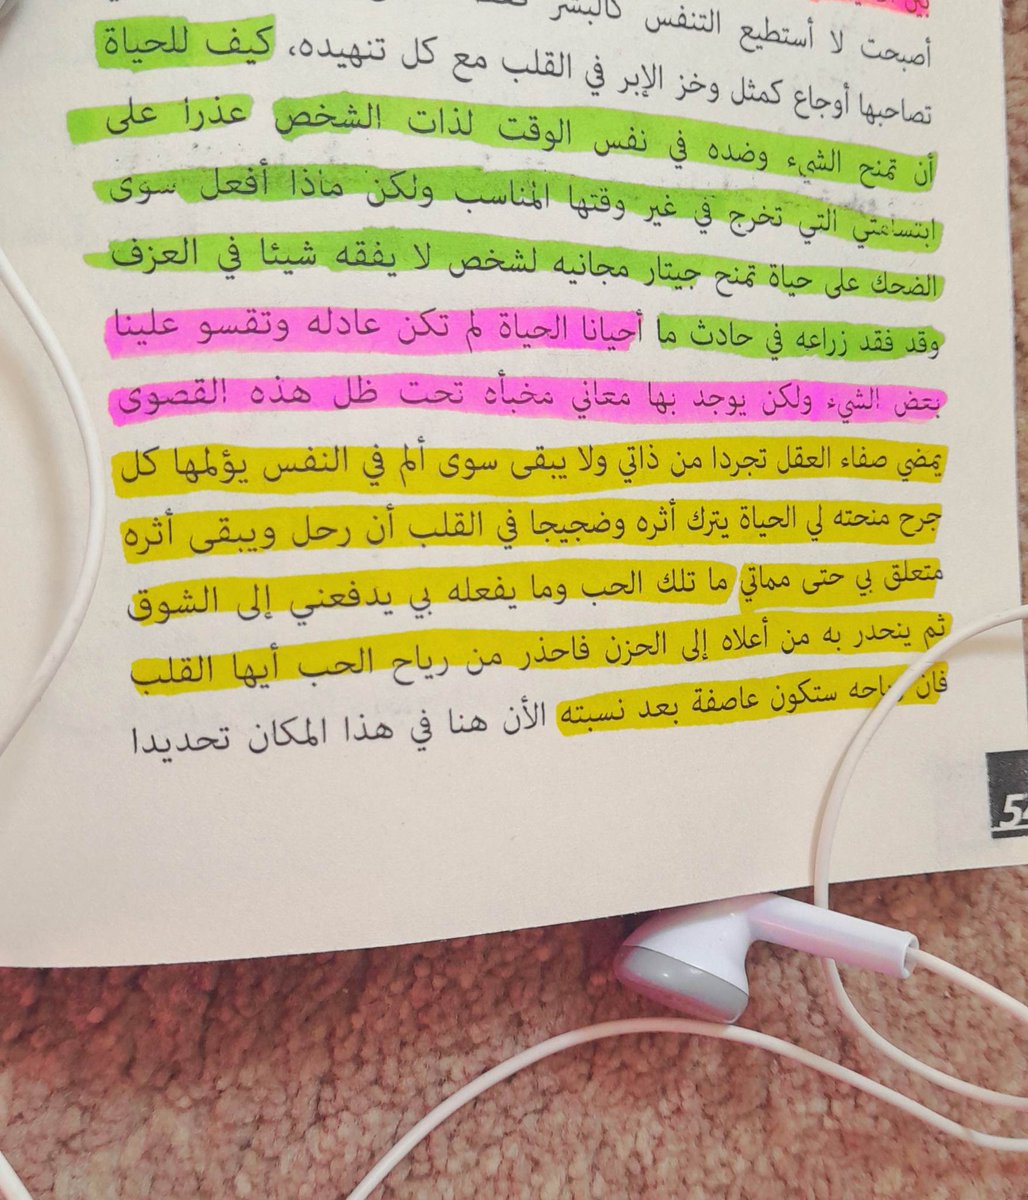 أصبحت لا أستطيع التنفس كالبشر
تصاحبها أوجاع كمثل وخز الإبر في القلب مع كل تنهيده، كيف للحياة
أن تمنح الشيء وضده في نفس الوقت لذات الشخص عذرا على
ابتسامتي التي تخرج في غير وقتها المناسب ولكن ماذا أفعل سوى
الضحك على حياة تمنح جيتار مجانيه لشخص لا يفقه شيئا في العزف
وقد فقد زراعه في حادث ما أحيانا الحياة لم تكن عادله وتقسو علينا
بعض الشيء ولكن يوجد بها معاني مخبأه تحت ظل هذه القصوى
يمضي صفاء العقل تجردا من ذاتي ولا يبقى سوى ألم في النفس يؤلمها كل
جرح منحته لي الحياة يترك أثره وضجيجا في القلب أن رحل ويبقى أثره
متعلق بي حتى مماتي ما تلك الحب وما يفعله بي يدفعني إلى الشوق
ثم ينحدر به من أعلاه إلى الحزن فاحذر من رياح الحب أيها القلب
فان ستكون عاصفة بعد نسبته الأن هنا في هذا المكان تحديدا